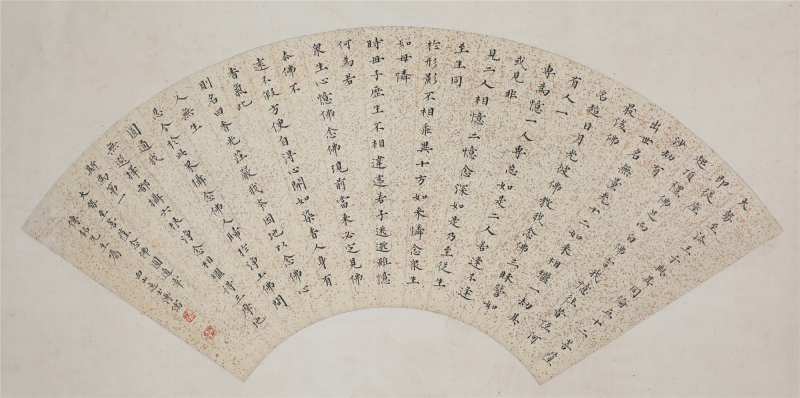 大勢
至法王子與其同倫五十二菩薩
即從座
起頂禮佛足而白佛言我憶往昔恆河
沙劫有佛
出世名無量光十二如來相繼一劫其
最後佛
名超日月光彼佛教我念佛三昧譬如
有人一
專為憶一人專忘如是二人若逢不逢
或見非
見二人相憶二憶念深如是乃至從生
至生同
於形影不相乖異十方如來憐念眾生
如母憐
時母子歷生不相違遠若子逃逝雖憶
何為若
眾生心憶佛念佛現前當來必定見佛
去佛不
遠不假方便自得心開如染香人身有
香氣此
則名曰香光莊嚴我本因地以念佛心
入無生
忍今於此界攝念佛人歸於淨土佛問
圓通我
無選擇都攝六根淨念相繼得三摩地
斯為第一
大勢至菩薩念佛圓通章